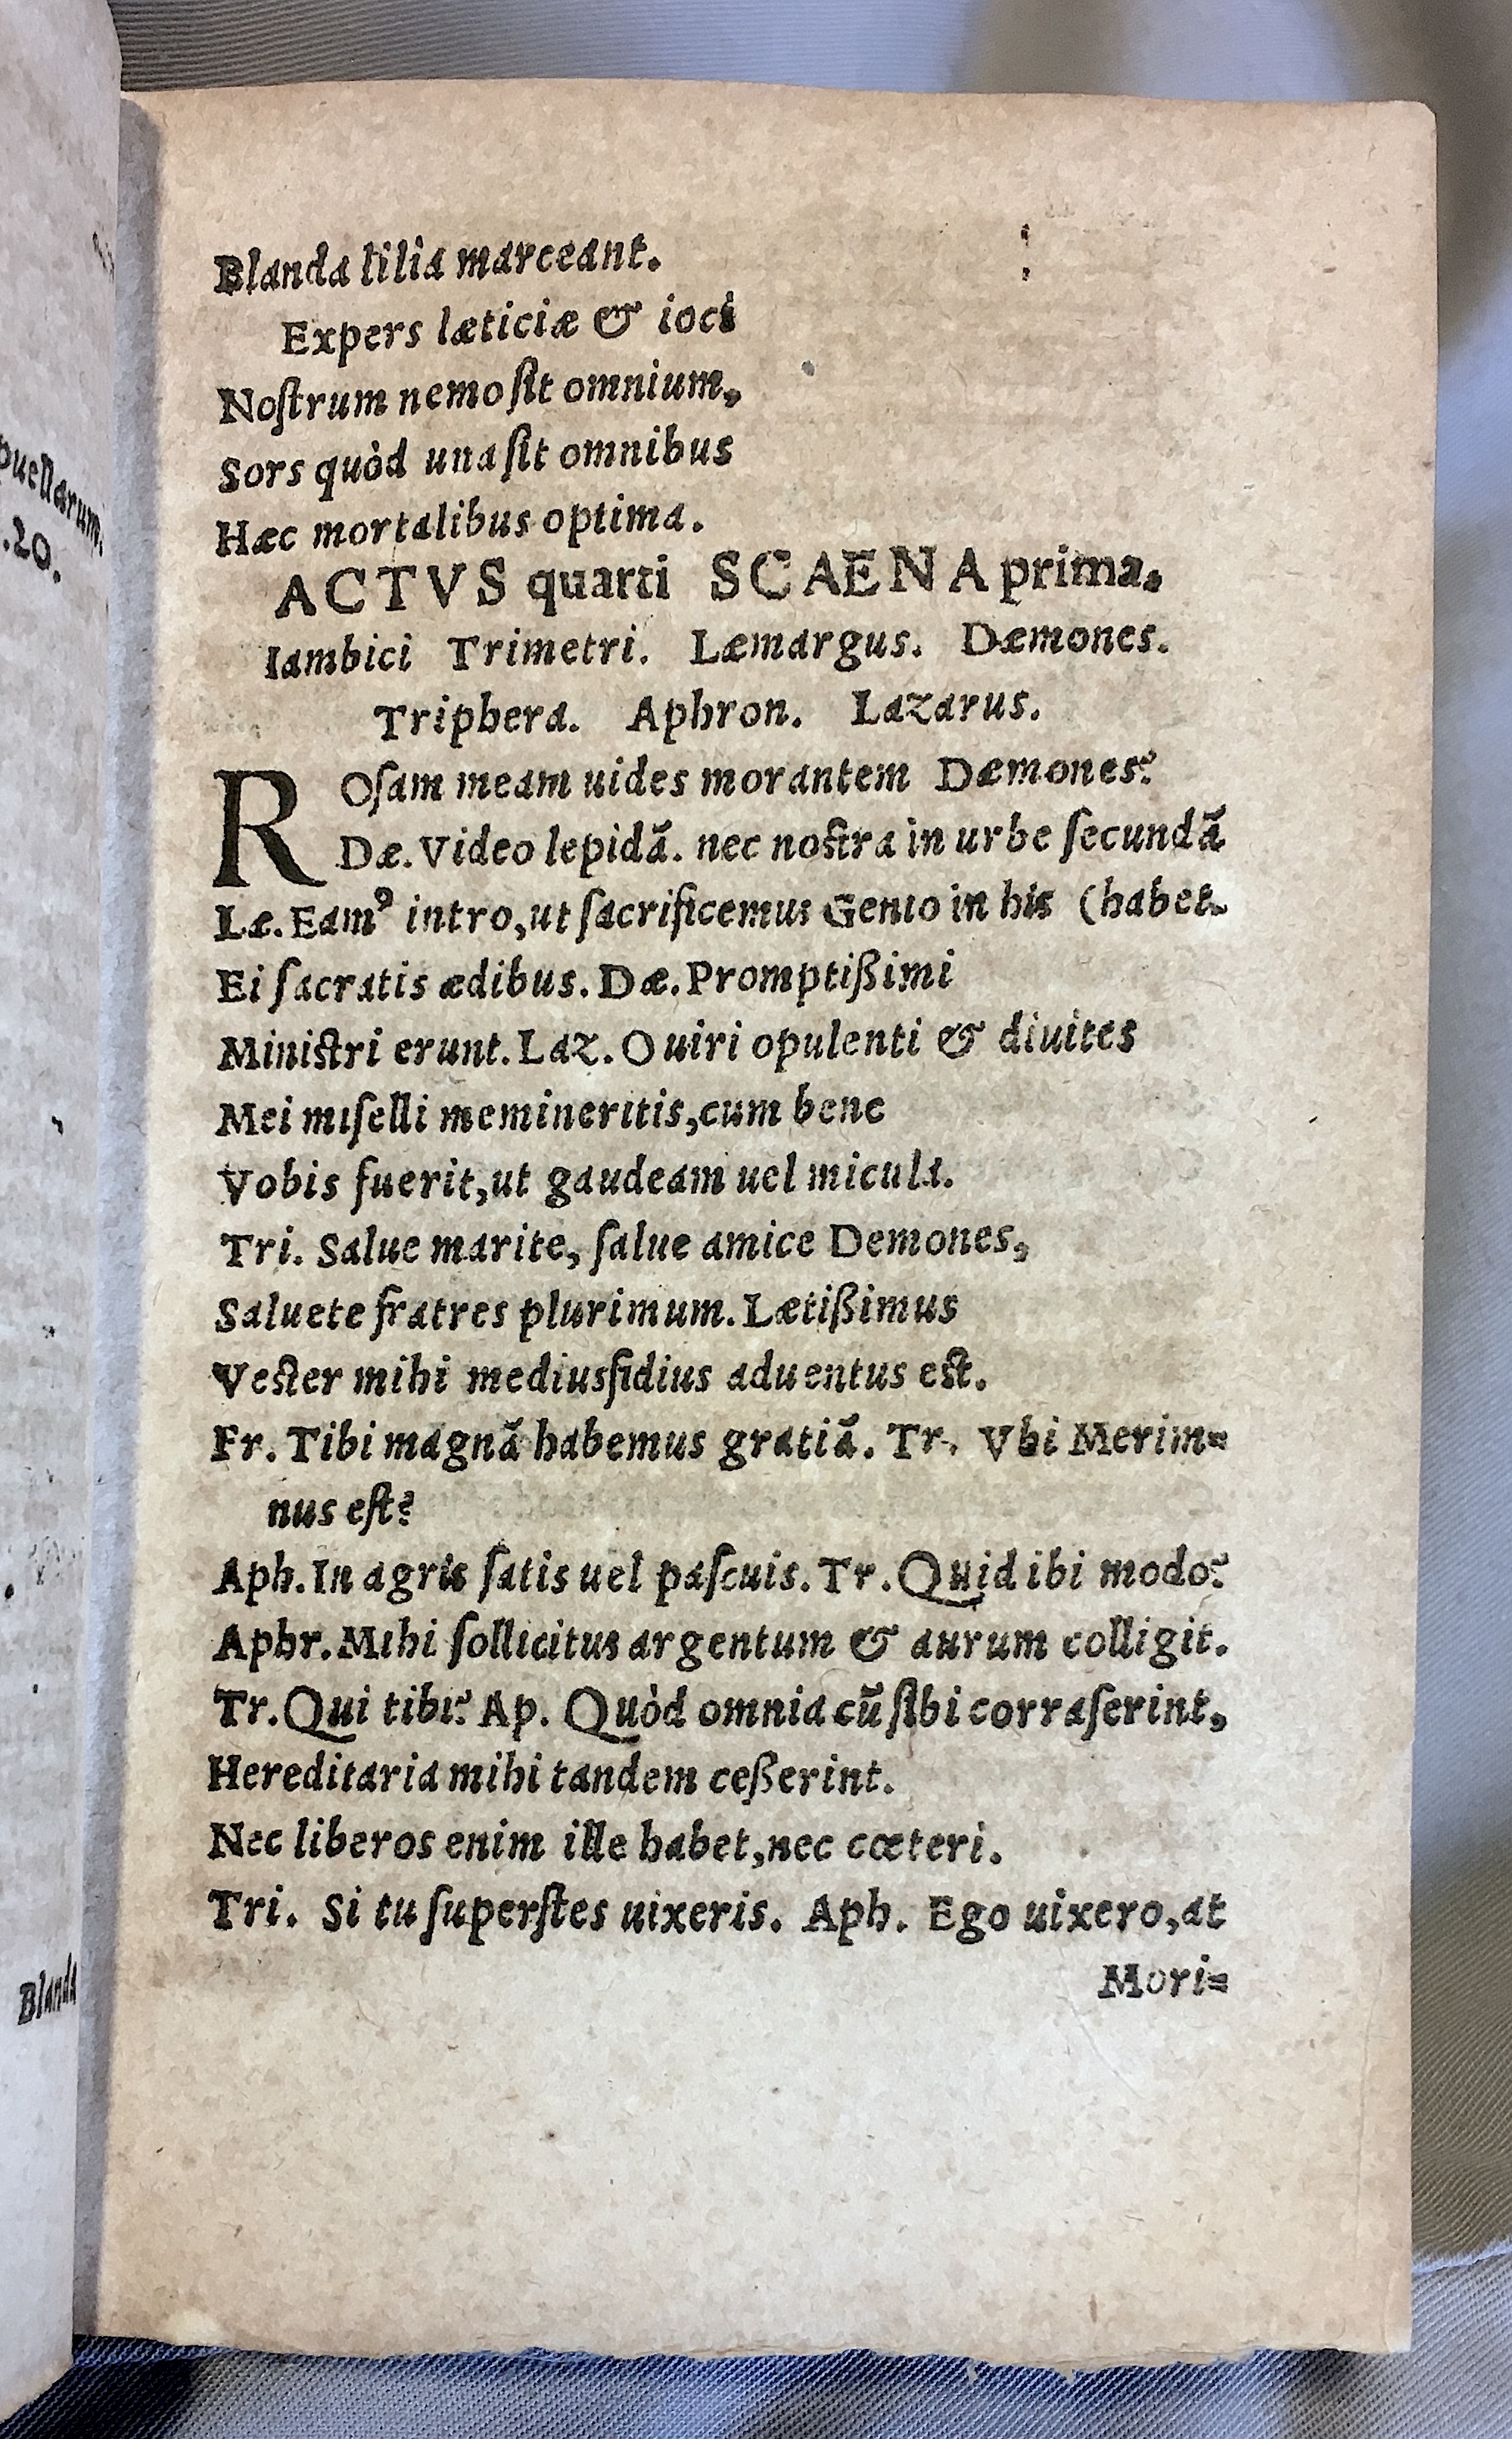 puellarum.
.20.
Blanda
Blanda lilia marceant.
Expers læticiæ & ioci
Noſtrum nemo ſit omnium,
Sors quòd una ſit omnibus
Hæc mortalibus optima.
ACTVS quarti SCAENA prima.
Iambici Trimetri. Læmargus. Dæmones.
Triphera. Aphron. Lazarus.
ROſam meam uides morantem Dæmones?
Dæ. Video lepidã. nec noſtra in urbe ſecundã
Læ. Eamꝰ intro, ut ſacrificemus Genio in his (habet.
Ei ſacratis ædibus. Dæ. Promptißimi
Miniſtri erunt. Laz. O uiri opulenti & diuites
Mei miſelli memineritis, cum bene
Vobis fuerit, ut gaudeam uel micula.
Tri. Salue marite, ſalue amice Demones,
Saluete fratres plurimum. Lætißimus
Veſter mihi mediusfidius aduentus eſt.
Fr. Tibi magnã habemus gratiã. Tr. Vbi Merim=
nus eſt?
Aph. In agris ſatis uel paſcuis. Tr. Quid ibi modo?
Aphr. Mihi ſollicitus argentum & aurum colligit.
Tr. Qui tibi? Ap. Quòd omnia cũ ſibi corraſerint,
Hereditaria mihi tandem ceßerint.
Nec liberos enim ille habet, nec cœteri.
Tri. Si tu ſuperſtes uixeris. Aph. Ego uixero, at
Mori=